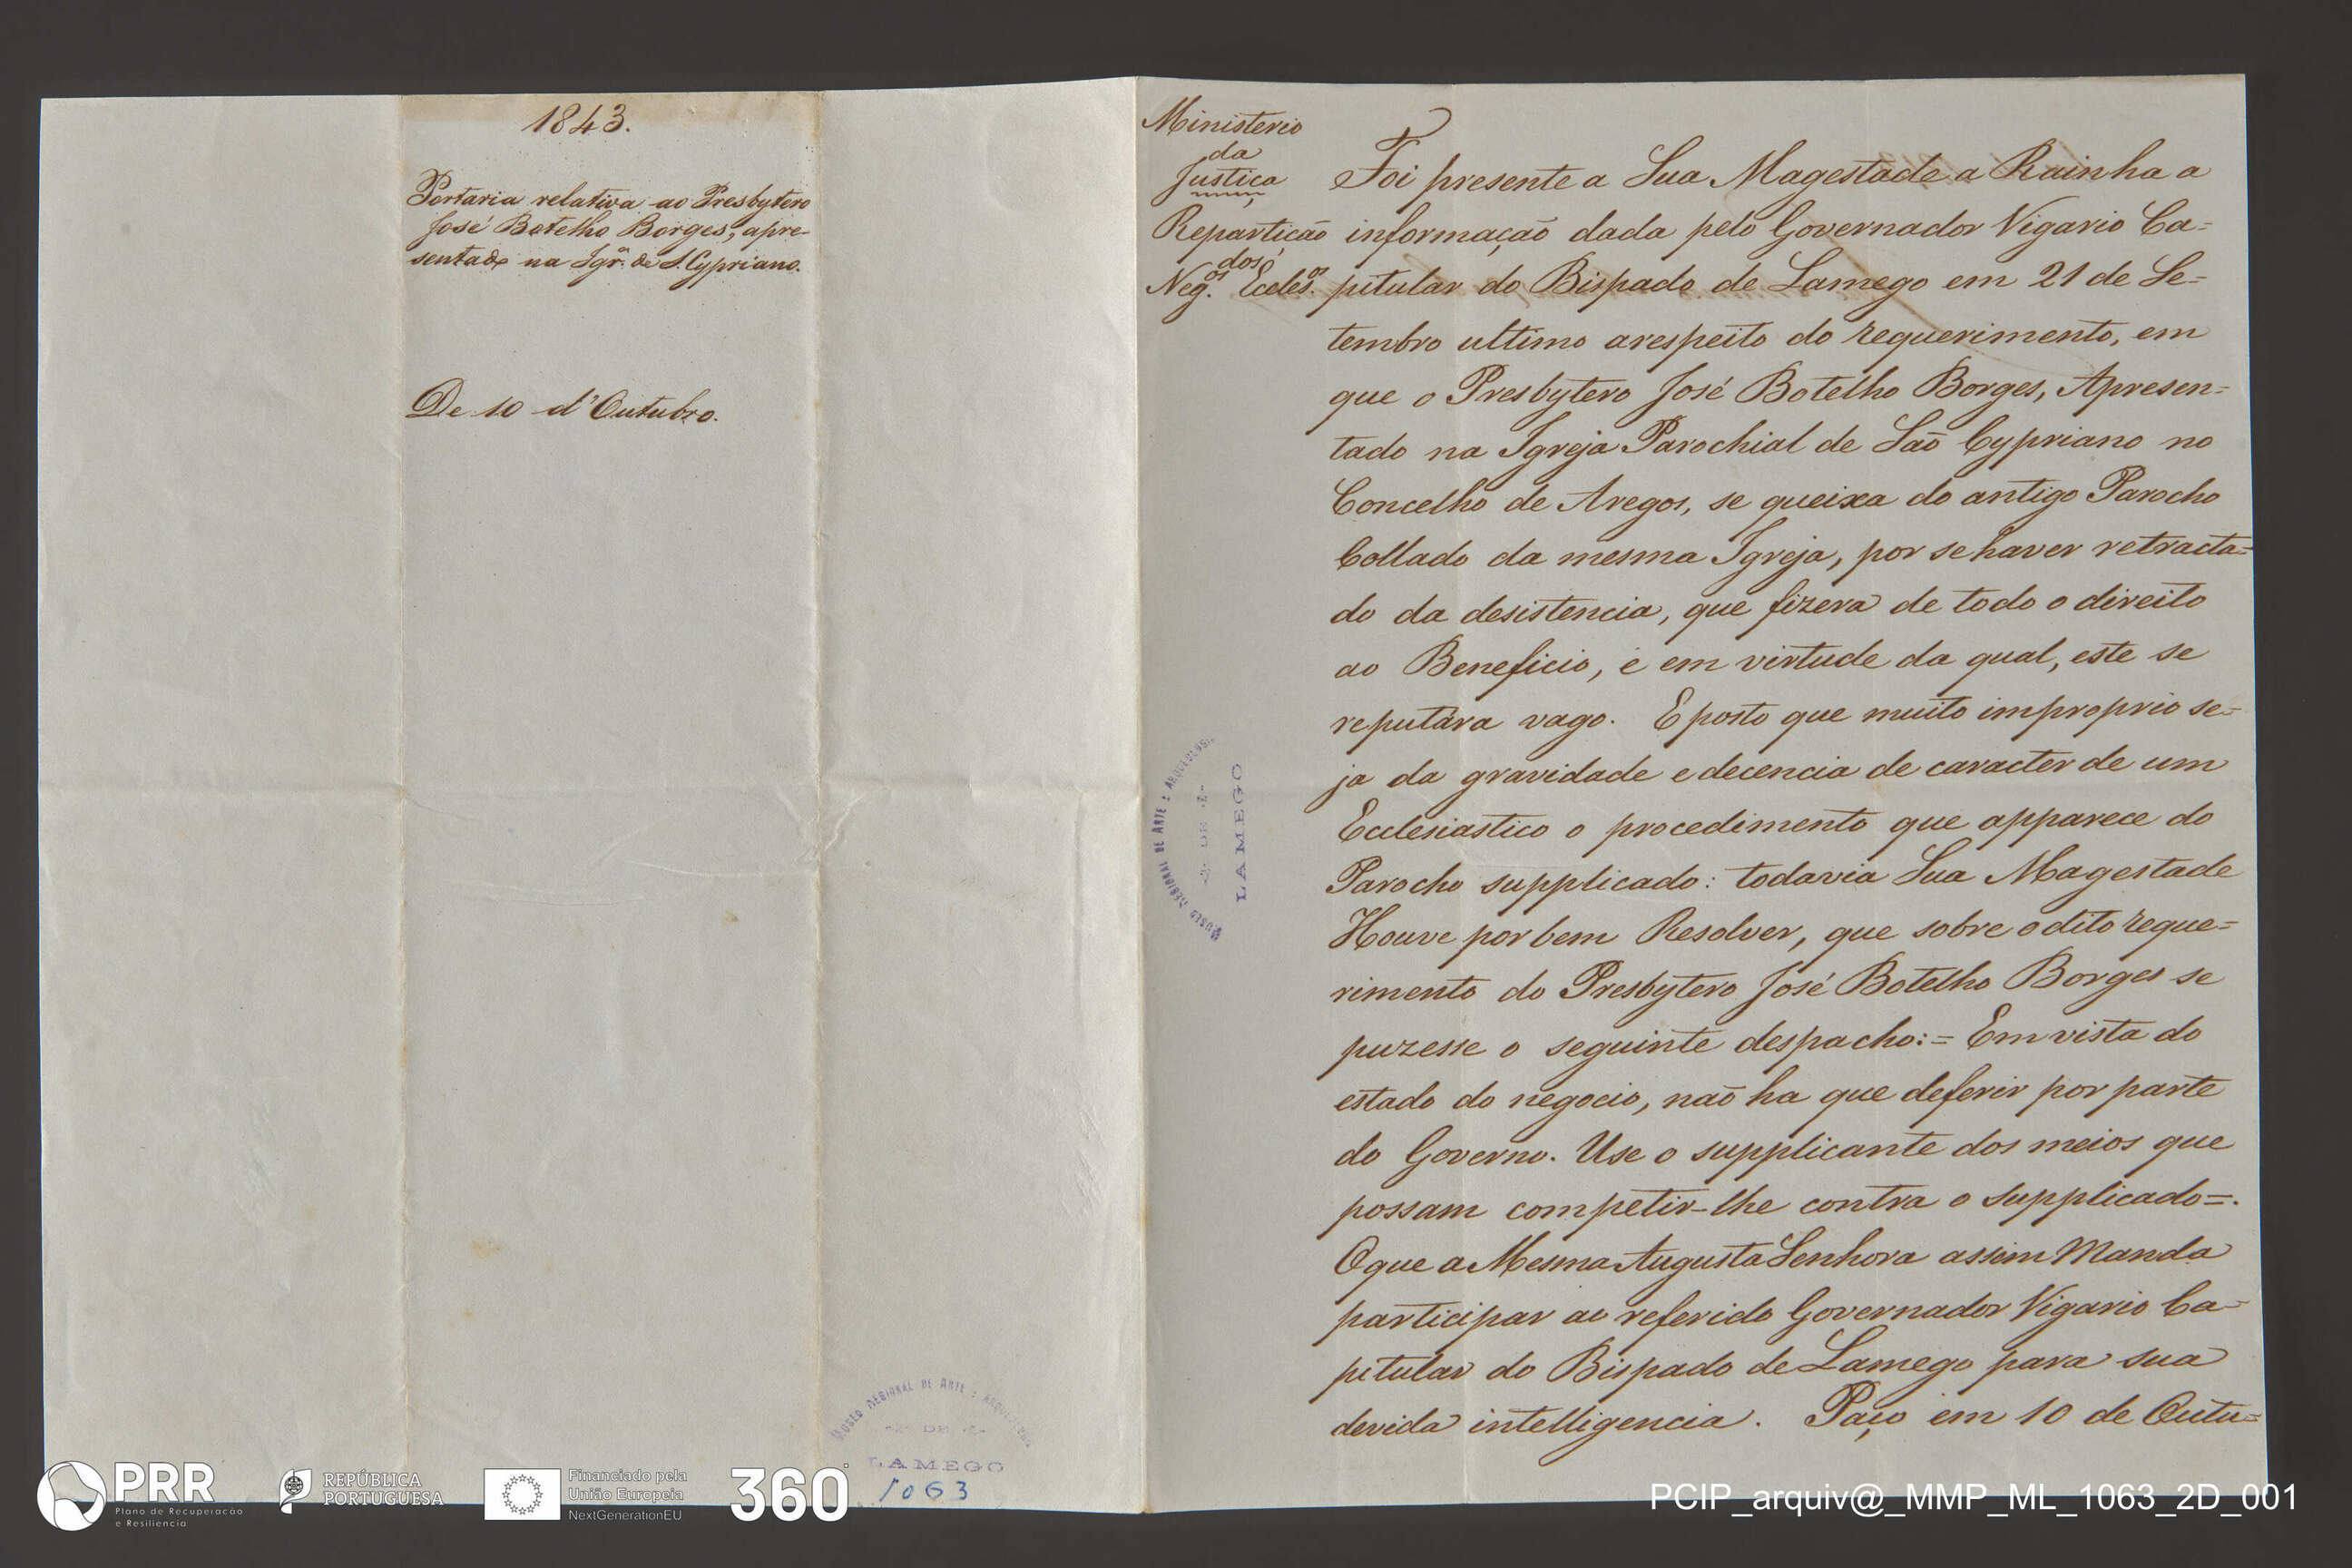 1843.
Portaria relativa ao Presbytero
José Botelho Borges, apre-
sentado na Igr.ª de S. Cypriano.
De 10 d'Outubro.
MUSEU REGIONAL DE ARTE E ARQUEOLOGIA
DE
LAMEGO
1063
Ministerio
da
Justiça
Repartição
dos
Neg.os Eccles.os
Foi presente a Sua Magestade a Rainha a
informação dada pelo Governador Vigario Ca=
pitular do Bispado de Lamego em 21 de Se=
tembro ultimo arespeito do requerimento, em
que o Presbytero José Botelho Borges, Apresen=
tado na Igreja Parochial de São Cypriano no
Concelho de Aregos, se queixa do antigo Parocho
Collado da mesma Igreja, por se haver retracta=
do da desistencia, que fizera de todo o direito
ao Beneficio, e em virtude da qual, este se
reputára vago. E posto que muito improprio se=
ja da gravidade e decencia de caracter de um
Ecclesiastico o procedimento que apparece do
Parocho supplicado: todavia Sua Magestade
Houve por bem Resolver, que sobre o dito reque=
rimento do Presbytero José Botelho Borges se
puzesse o seguinte despacho:= Em vista do
estado do negocio, não ha que deferir por parte
do Governo. Use o supplicante dos meios que
possam competir-lhe contra o supplicado=.
O que a Mesma Augusta Senhora assim Manda
participar ao referido Governador Vigario Ca=
pitular do Bispado de Lamego para sua
devida intelligencia. Paço em 10 de Outu=
MUSEU REGIONAL DE ARTE E ARQUEOLOGIA
DE
LAMEGO
PRR
Plano de Recuperação
e Resiliência
REPÚBLICA
PORTUGUESA
Financiado pela
União Europeia
NextGenerationEU
360°
PCIP_arquiv@_MMP_ML_1063_2D_001